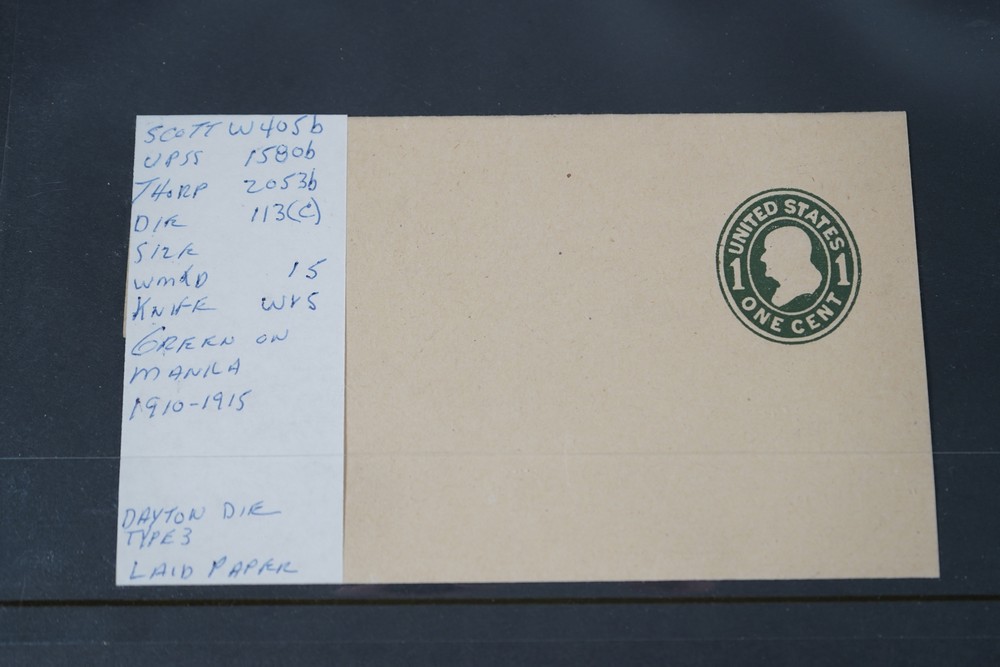 SCOTT W405b
UPSS 1580b
THORP 2053b
DIE 113(C)
SIZE
WMKD 15
KNIFE WR5
GREEN ON
MANILA
1910-1915
DAYTON DIE
TYPE 3
LAID PAPER
UNITED STATES
1 1
ONE CENT